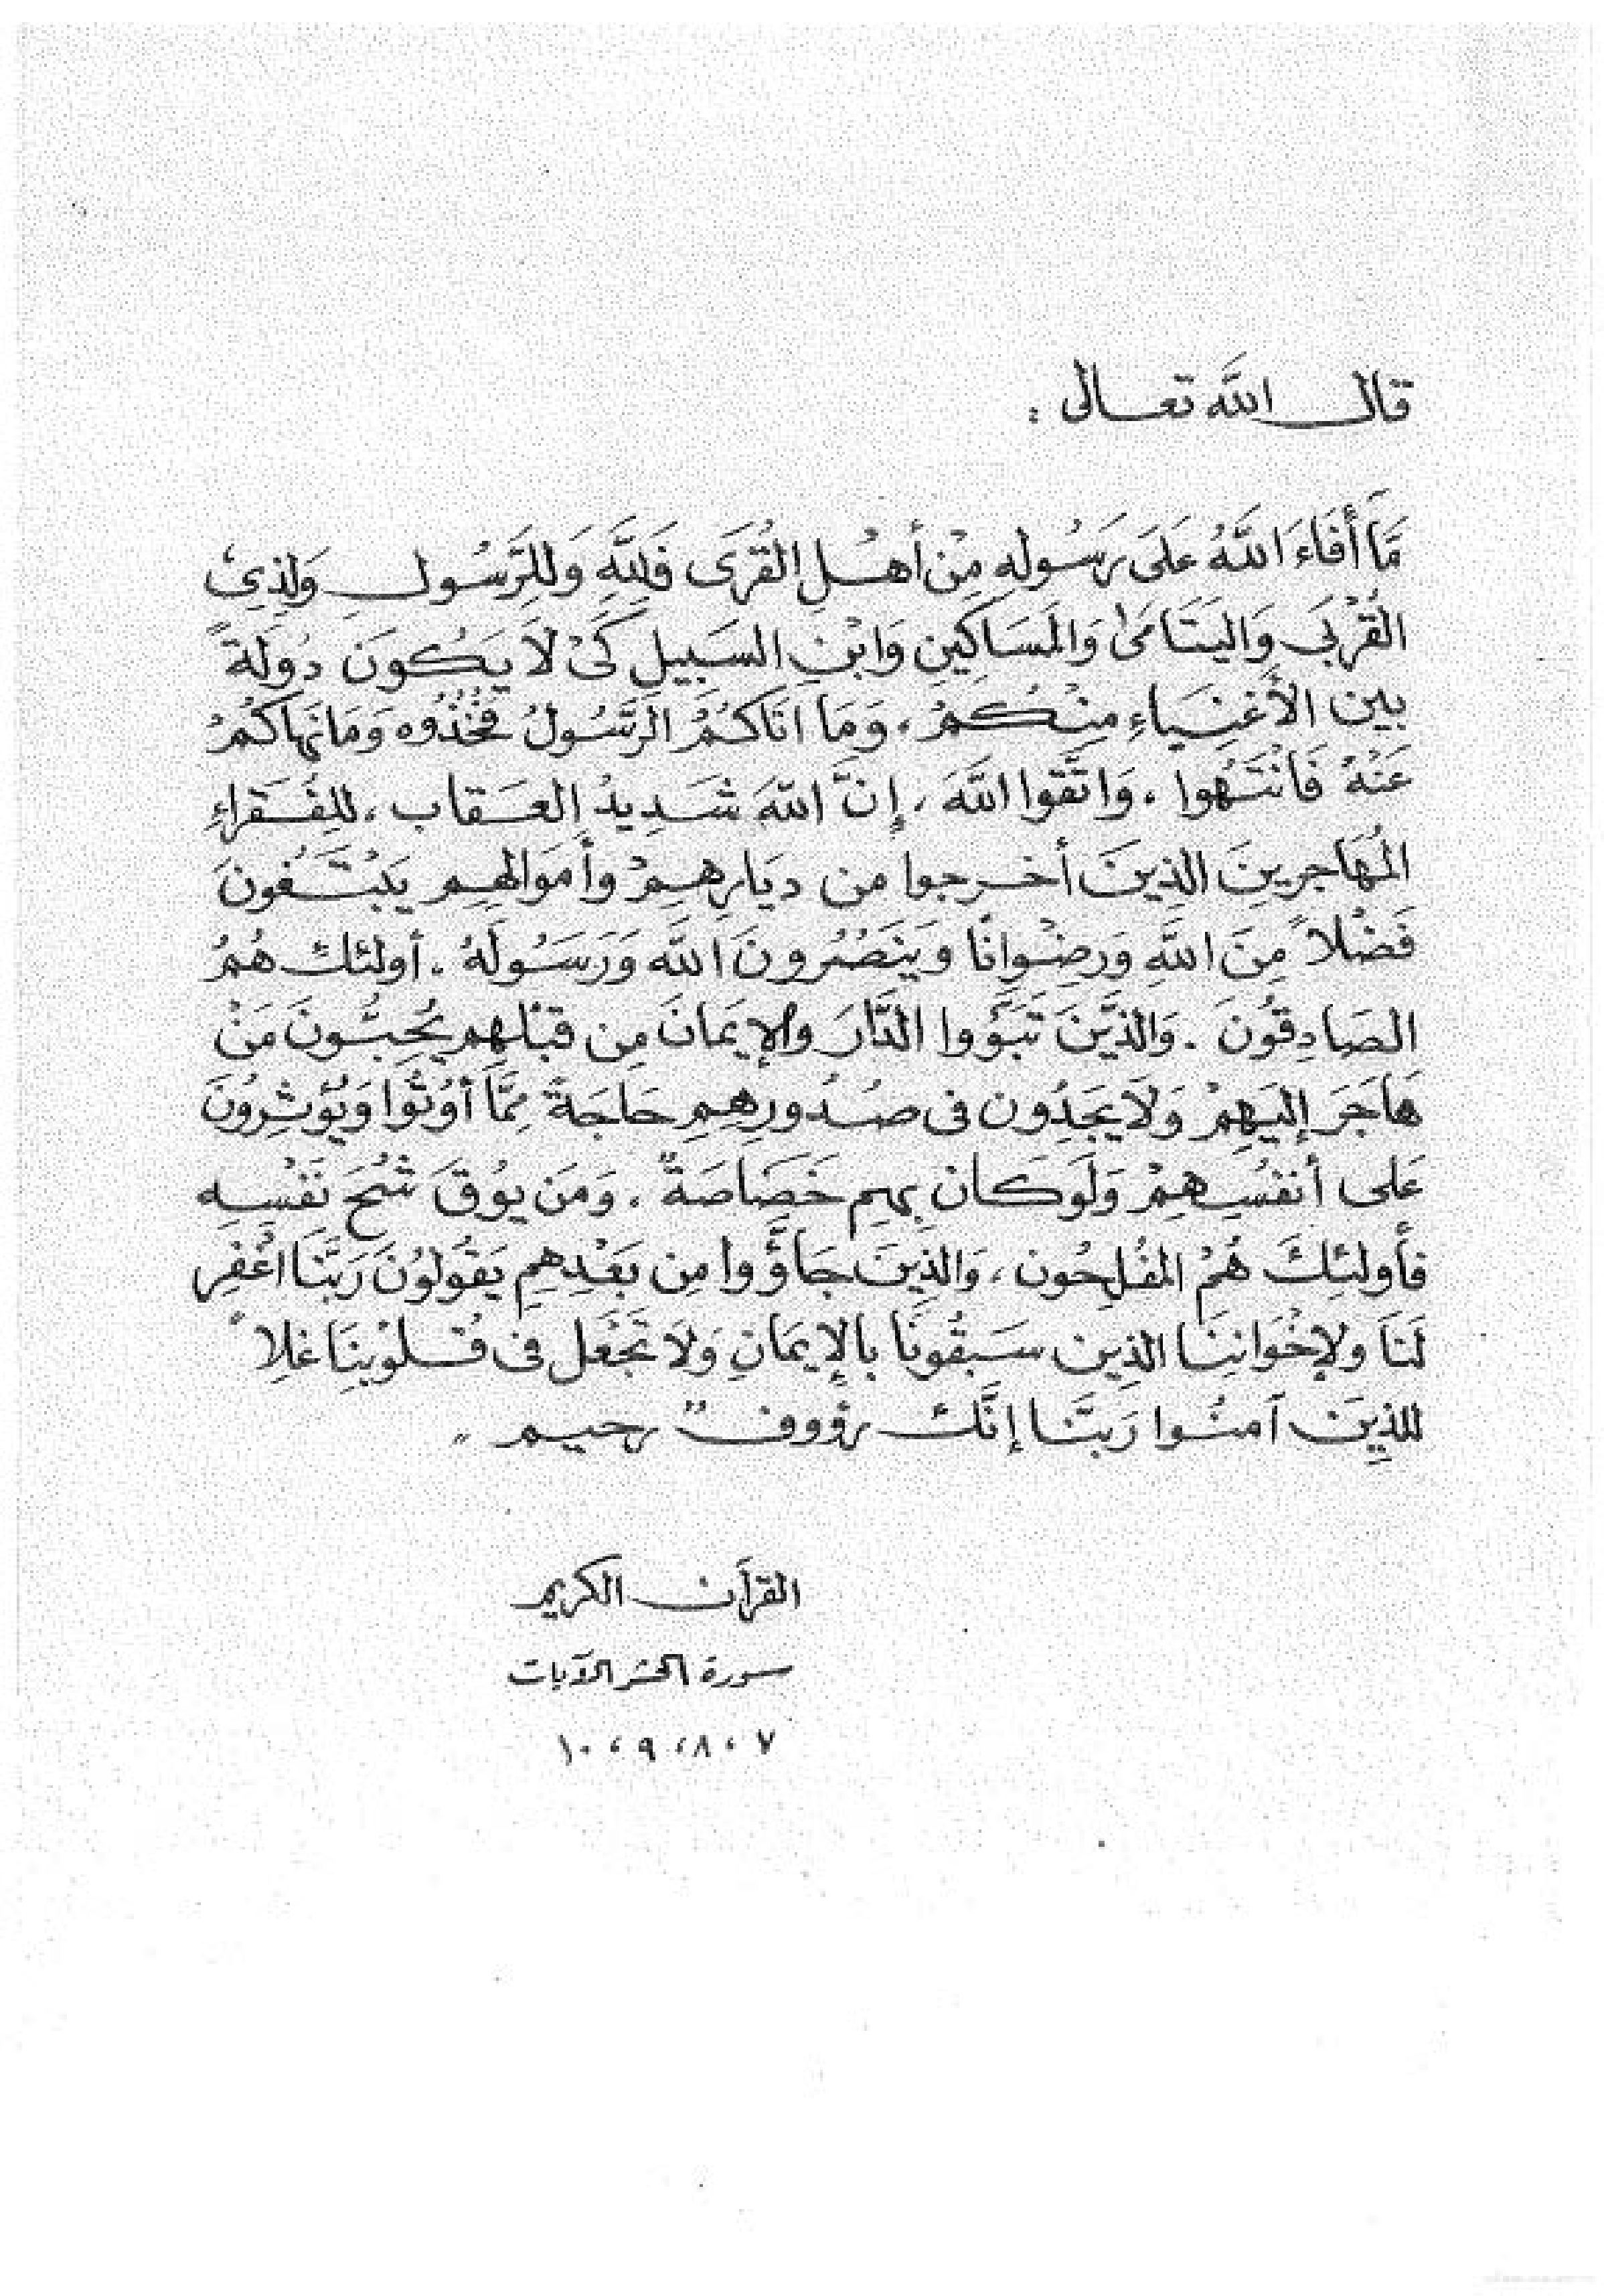 قال الله تعالى :
مَّا أَفَاءَ اللَّهُ عَلَى رَسُولِهِ مِنْ أَهْلِ القُرَى فَلِلَّهِ وَللِرَّسُولِ وَلِذِى
القُرْبَى وَاليَتَامَى وَالمَسَاكِينِ وَابْنِ السَبِيلِ كَىْ لَا يَكُونَ دُولَةً
بين الأَغنِيَاءِ مِنْكُمْ ، وَمَا اتَاكُمُ الرَّسُولُ فَخُذُوه وَمَا نَهاكُمْ
عَنْهُ فَانْتَهُوا . وَاتَّقوا اللَّهَ ، إِنّ اللهَ شَدِيدُ العَقاب ، للِفُقَراءِ
المُهَاجِرِينَ الذِينَ أخرجوا من دِيَارِهِمْ وأَموَالِهِم يَبْتَغُونَ
فَضْلاً مِنَ اللَّهِ وَرِضْوانًا وَيَنصُرونَ اللَّه وَرَسُولَهُ . أولئك هُمُ
الصَادِقُونَ . وَالذَّينَ تَبَوَّؤوا الدَّارَ والإيمَانَ مِن قبْلهِم يُحِبُّونَ مَنْ
هَاجَرَ إليَهِمْ وَلَا يَجِدُون فى صُدُورِهِمِ حَاجَةً مِمَّا أُوتُوا وَيُؤثِرونَ
عَلى أنفُسِهِمْ وَلَو كَان بِهِم خَصَاصَةٌ . وَمَن يُوقَ شُحَّ نَفْسِه
فأولئِكَ هُمْ المفُلِحُون ، وَالذِينَ جَاؤُوا مِن بَعْدِهِمِ يَقُولوُنَ رَبَّنَا اغْفِر
لَنَا ولإخْوَانِنَا الذِين سَبَقُونَا بالإيمَانِ وَلاَ تَجْعَل فى قُلوُبِنَا غِلاً
للذِينَ آمنُوا رَبَّنا إنَّك رؤوفٌ رحيم "
القرآن الكريم
سورة الحشر الآيات
٧ ، ٨ ، ٩ ، ١٠